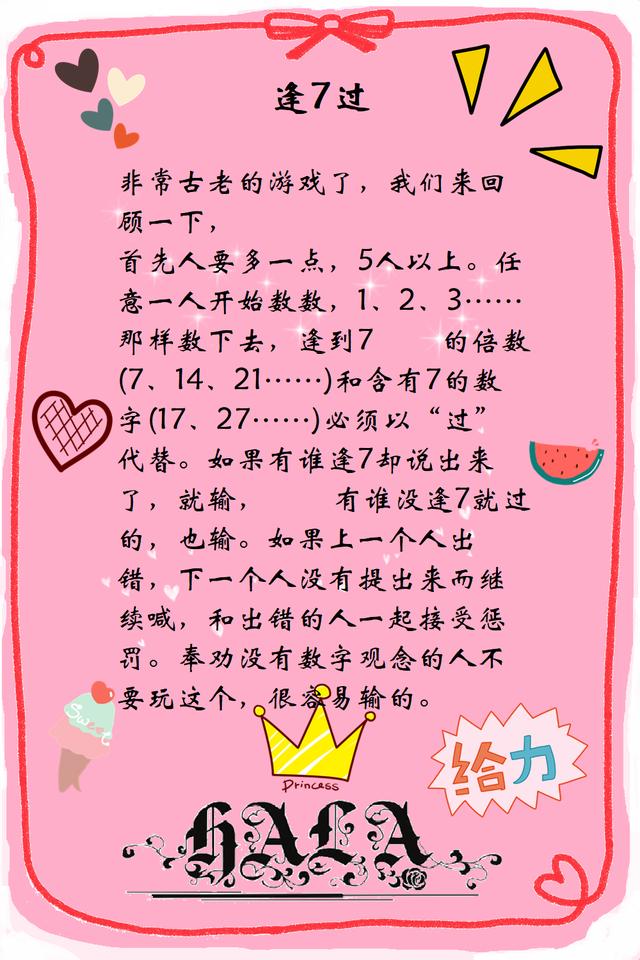 逢7过
非常古老的游戏了，我们来回
顾一下，
首先人要多一点，5人以上。任
意一人开始数数，1、2、3……
那样数下去，逢到7 的倍数
(7、14、21……)和含有7的数
字(17、27……)必须以“过”
代替。如果有谁逢7却说出来
了，就输， 有谁没逢7就过
的，也输。如果上一个人出
错，下一个人没有提出来而继
续喊，和出错的人一起接受惩
罚。奉劝没有数字观念的人不
要玩这个，很容易输的。
Sweet
Princess
给力
HALA